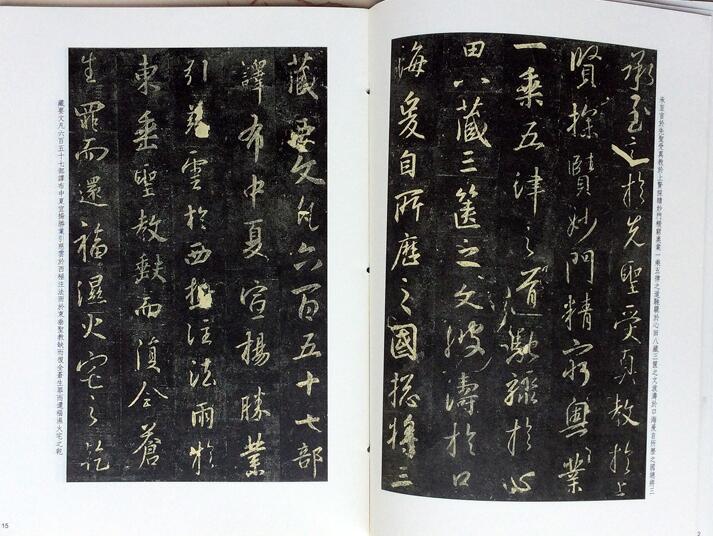 承至言於先聖受真教於上賢探賾妙門精窮奧業一乘五律之道馳驟於心田八藏三篋之文波濤於口海爰自所歷之國總將三
承至言於先聖受真教於上
賢探賾妙門精窮奧業
一乘五律之道馳驟於心
田八藏三篋之文波濤於口
海爰自所歷之國總將三
2
藏要文凡六百五十七部
譯布中夏宣揚勝業
引慈雲於西極注法雨於
東垂聖教缺而復全蒼
生罪而還福濕火宅之乾
藏要文凡六百五十七部譯布中夏宣揚勝業引慈雲於西極注法雨於東垂聖教缺而復全蒼生罪而還福濕火宅之乾
15